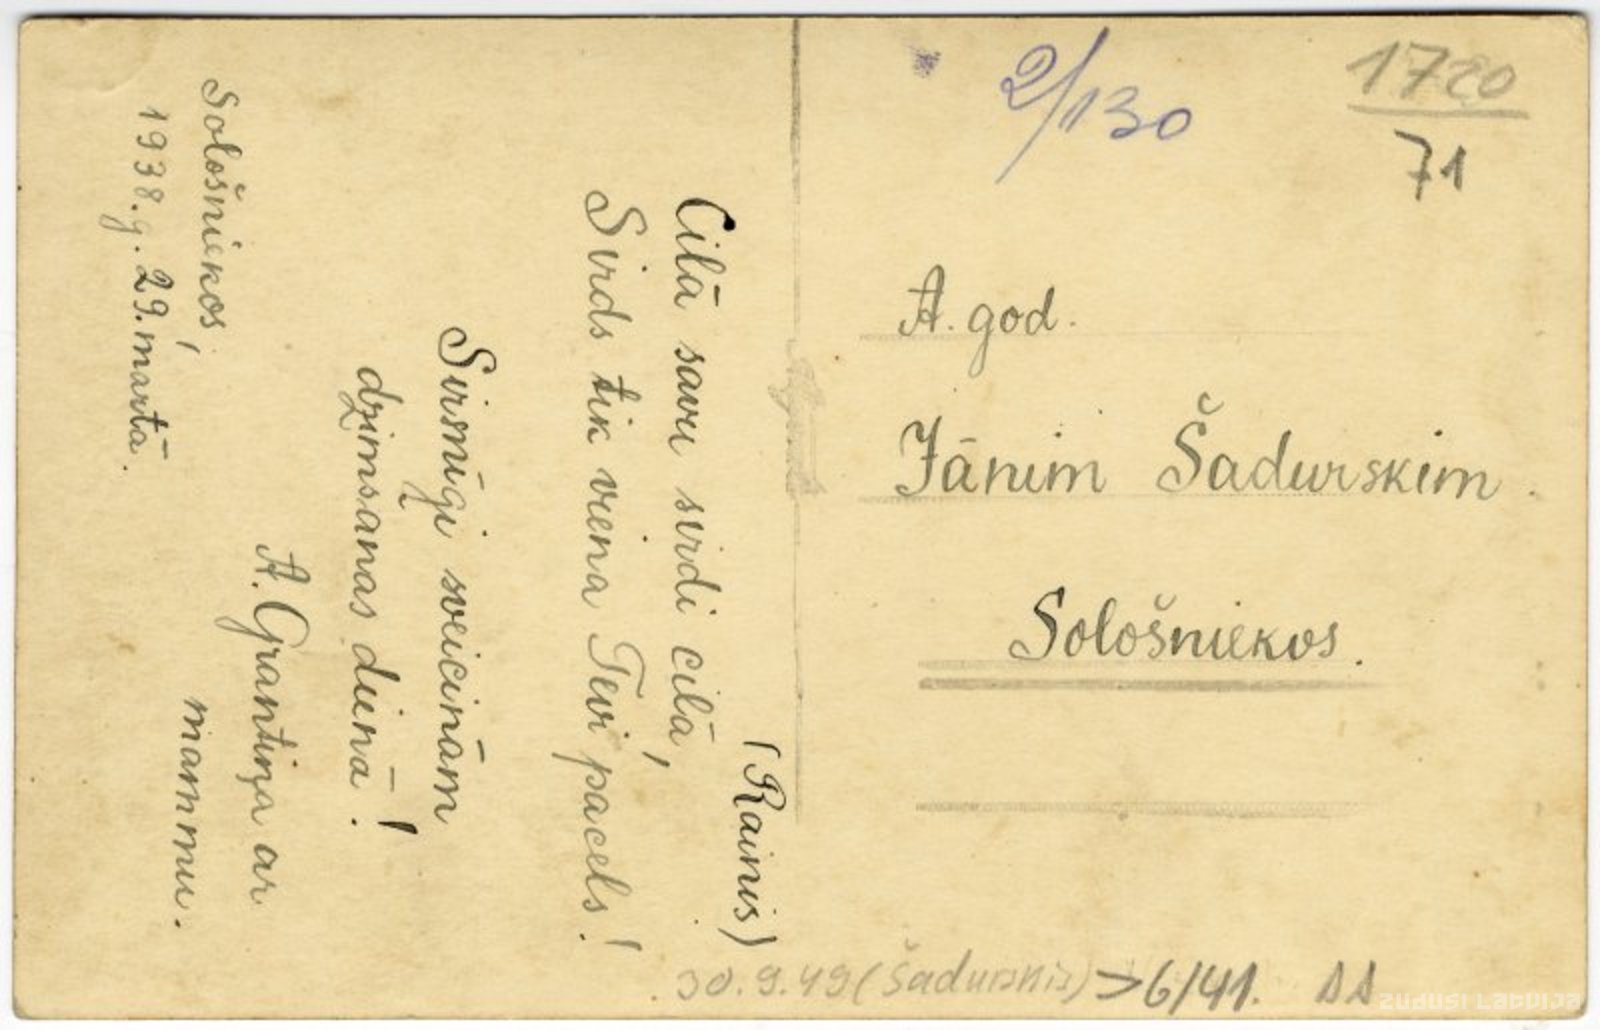 (Rainis)
Cilā savu sirdi cilā,
Sirds tik viena Tevi pacels!
Sirsnīgi sveicinām
dzimšanas dienā!
A. Grantiņa ar
mammu.
Sološniekos,
1938.g. 29. martā.
2/130
1720
71
A. god.
Jānim Šadurskim.
Sološniekos.
30.9.49 (Šadurskis) → 6/41.
zudusi Latvija